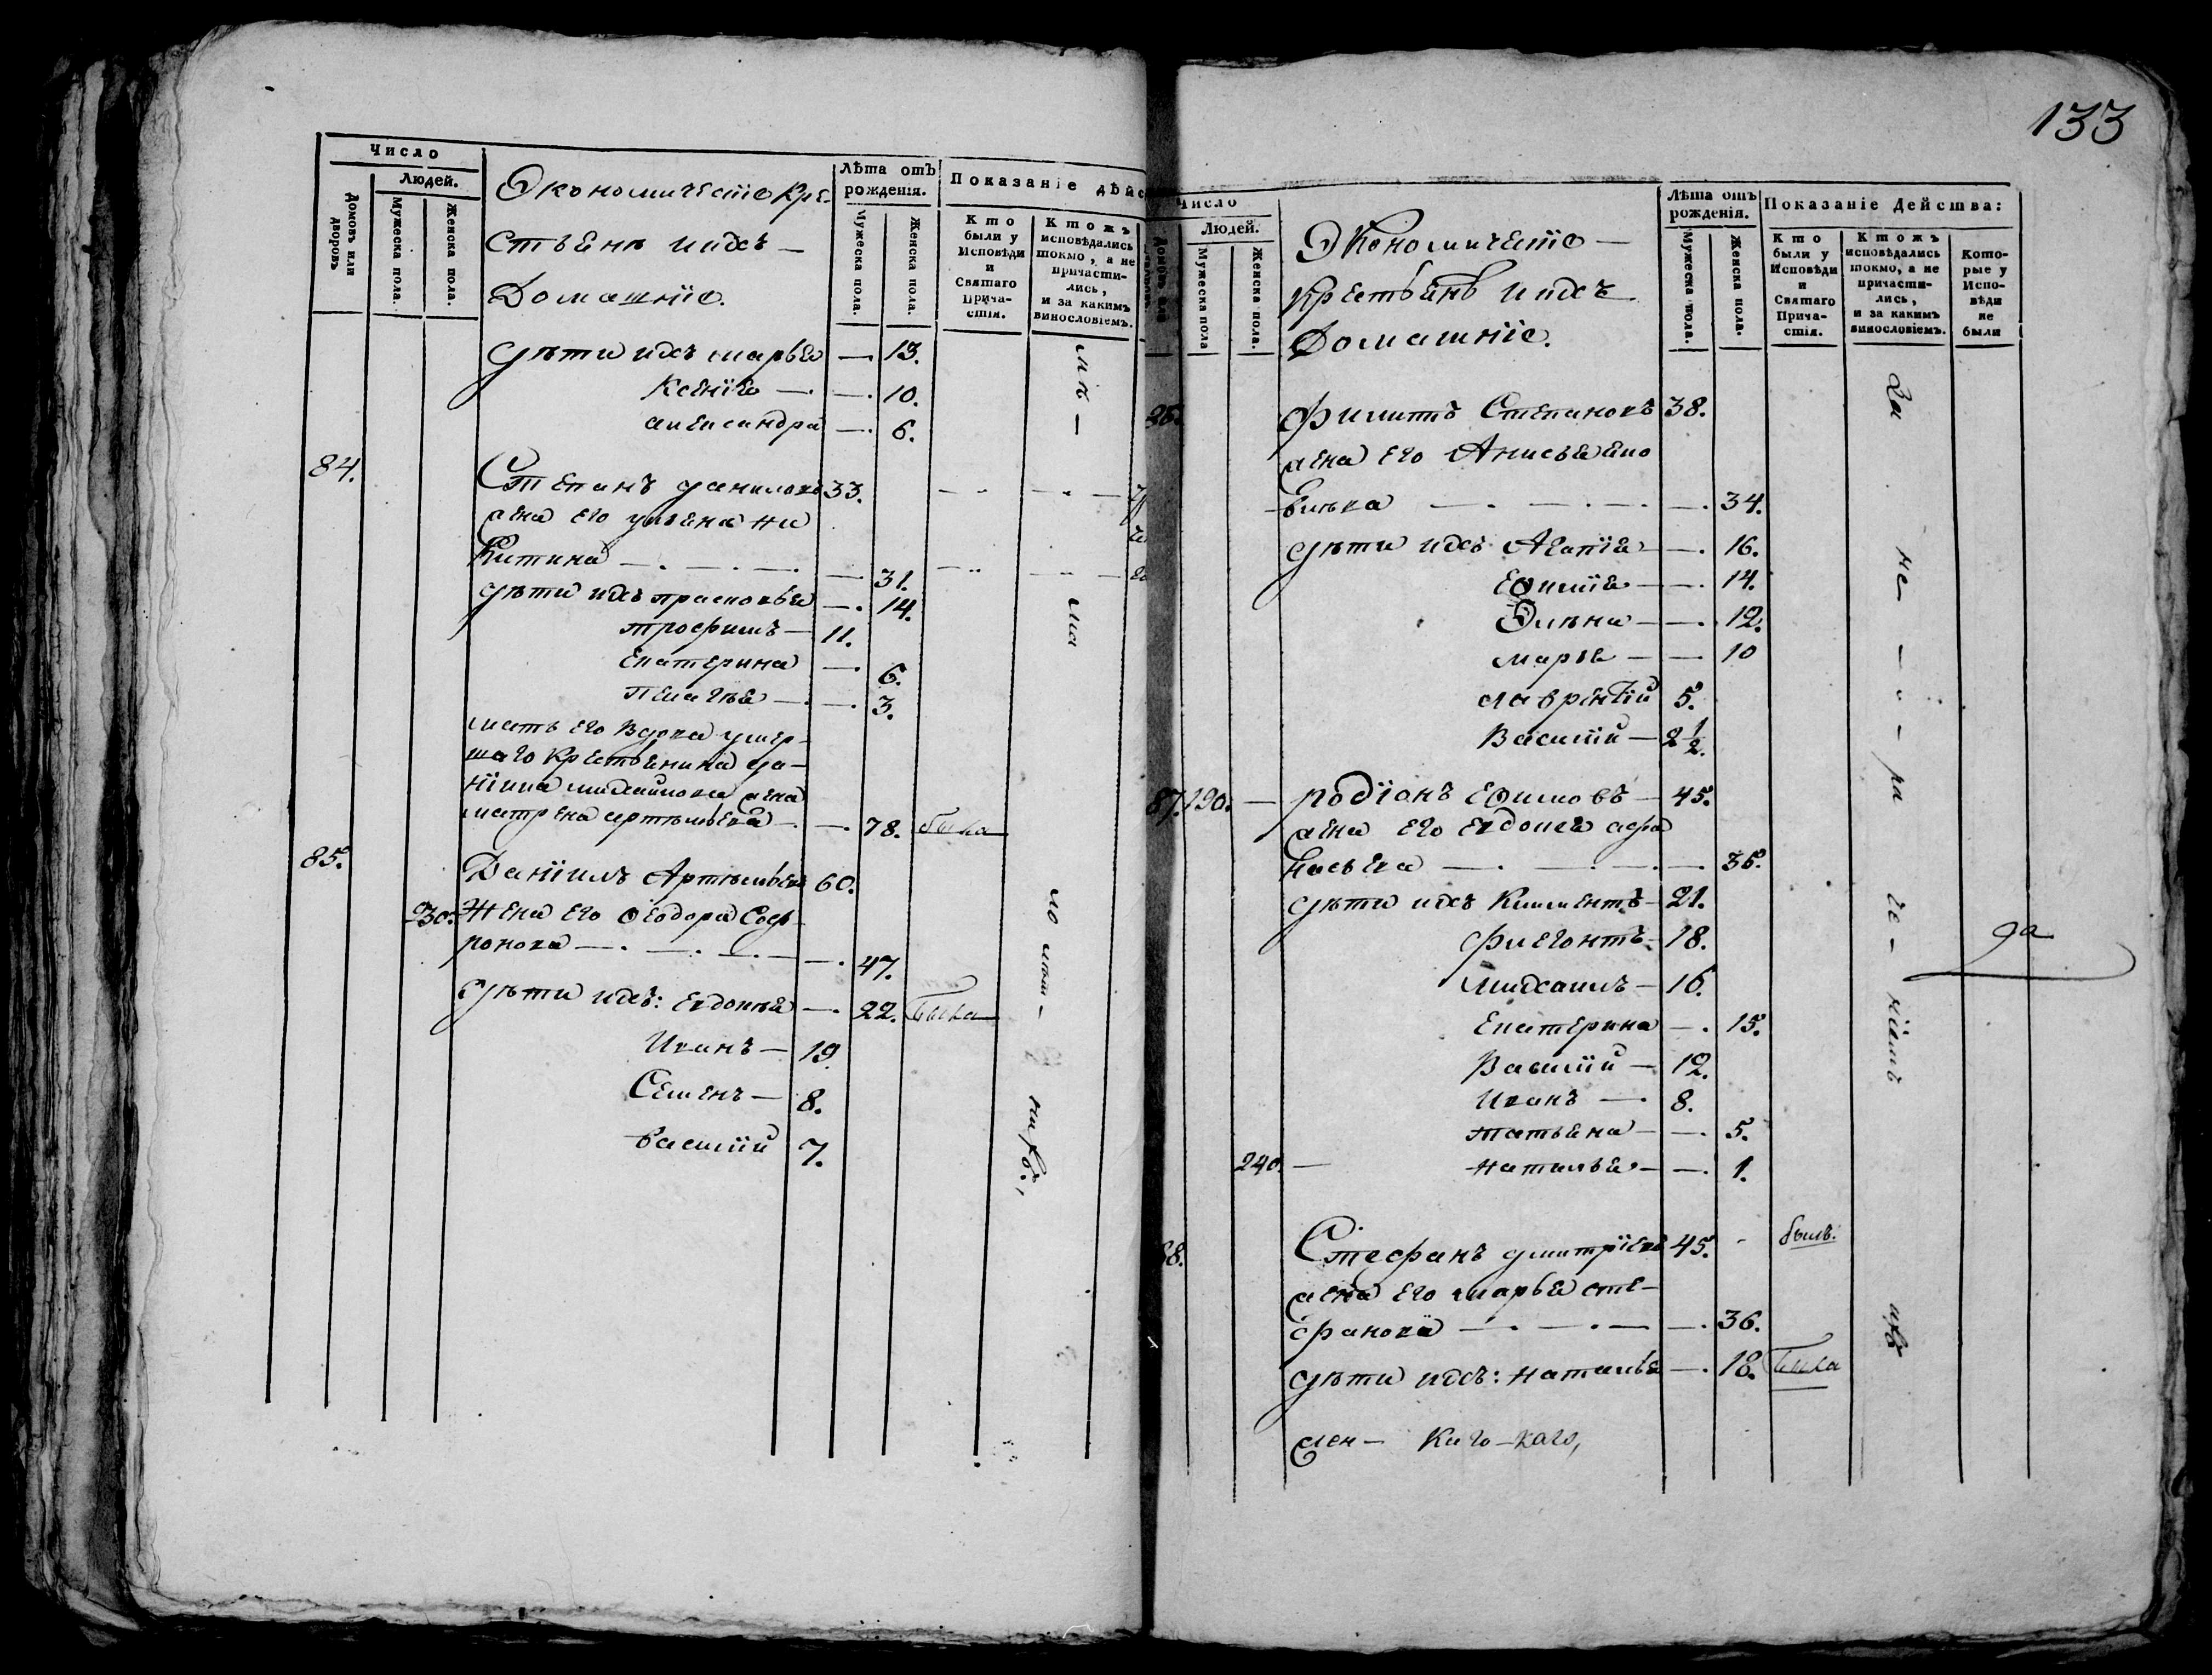 Число
Людей.
Домовъ или дворовъ
Мужеска пола.
Женска пола.
Экономическіе кре-
стьянѣ и ихъ
Домашніе.
Лѣта отъ рожденія.
Мужеска пола.
Женска пола.
Показаніе дѣйс
Кто были у Исповѣди и Святаго Прича-стія.
Ктожъ исповѣдались токмо, а не причасти-лись, и за какимъ винословіемъ.
дѣти ихъ марья — 13.
Ксенія — 10.
александра — 6.
84. Степанъ даниловъ 33.
жена его ульяна ни
китина — 31.
дѣти ихъ прасковья — 14.
трофимъ — 11.
екатерина — 6.
пелагѣя — 3.
мать его вдова умер-
шаго крестьянина да-
ніила михайлова жена
матрена артемьева — 78. была
85. Даніилъ Артемьевъ 60.
230. Жена его Ѳеодора Соф-
ронова — 47.
дѣти ихъ: евдокѣя — 22. была
Иванъ — 19.
Семенъ — 8.
василій 7.
133
Число
Людей.
Мужеска пола
Женска пола.
Экономическіе —
крестьянѣ и ихъ
Домашніе.
Лѣта отъ рожденія.
Мужеска пола.
Женска пола.
Показаніе Дейсшва:
Кто были у Исповѣди и Святаго Прича-стія.
Ктожъ исповѣдались токмо, а не причасти-лись, и за какимъ винословіемъ.
Кото-рые у Испо-вѣди не были
Филипъ Степановъ 38.
жена его Анисья
34.
дѣти ихъ Агапія — 16.
Еѳимія — 14.
Элѣна — 12.
марья — 10
лаврентій 5.
Василій — 2 1/2.
87. 190. — родіонъ еѳимовъ — 45.
жена его евдокея афа
насьева — 35.
дѣти ихъ Климентъ — 21.
флегонтъ — 18.
михаилъ — 16.
Екатерина — 15.
Василій — 12.
Иванъ — 8.
татьяна — 5.
240. — наталья — 1.
88. Стефанъ дмитріевъ 45. - былъ.
жена его марья сте-
фанова — 36.
дѣти ихъ: наталья — 18. была